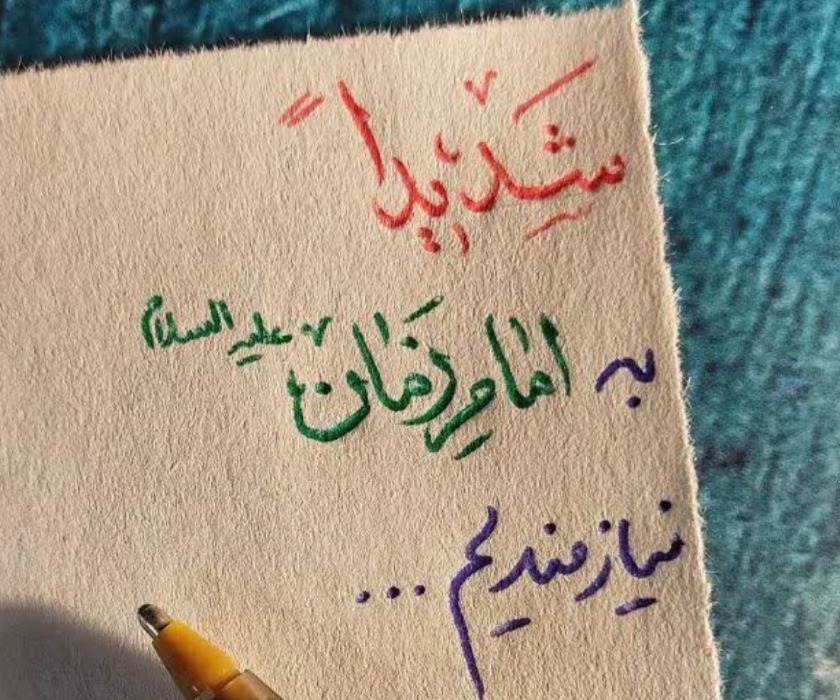 شَدیداً
به امامِ زَمان علیه السلام
نیازمندیم ...